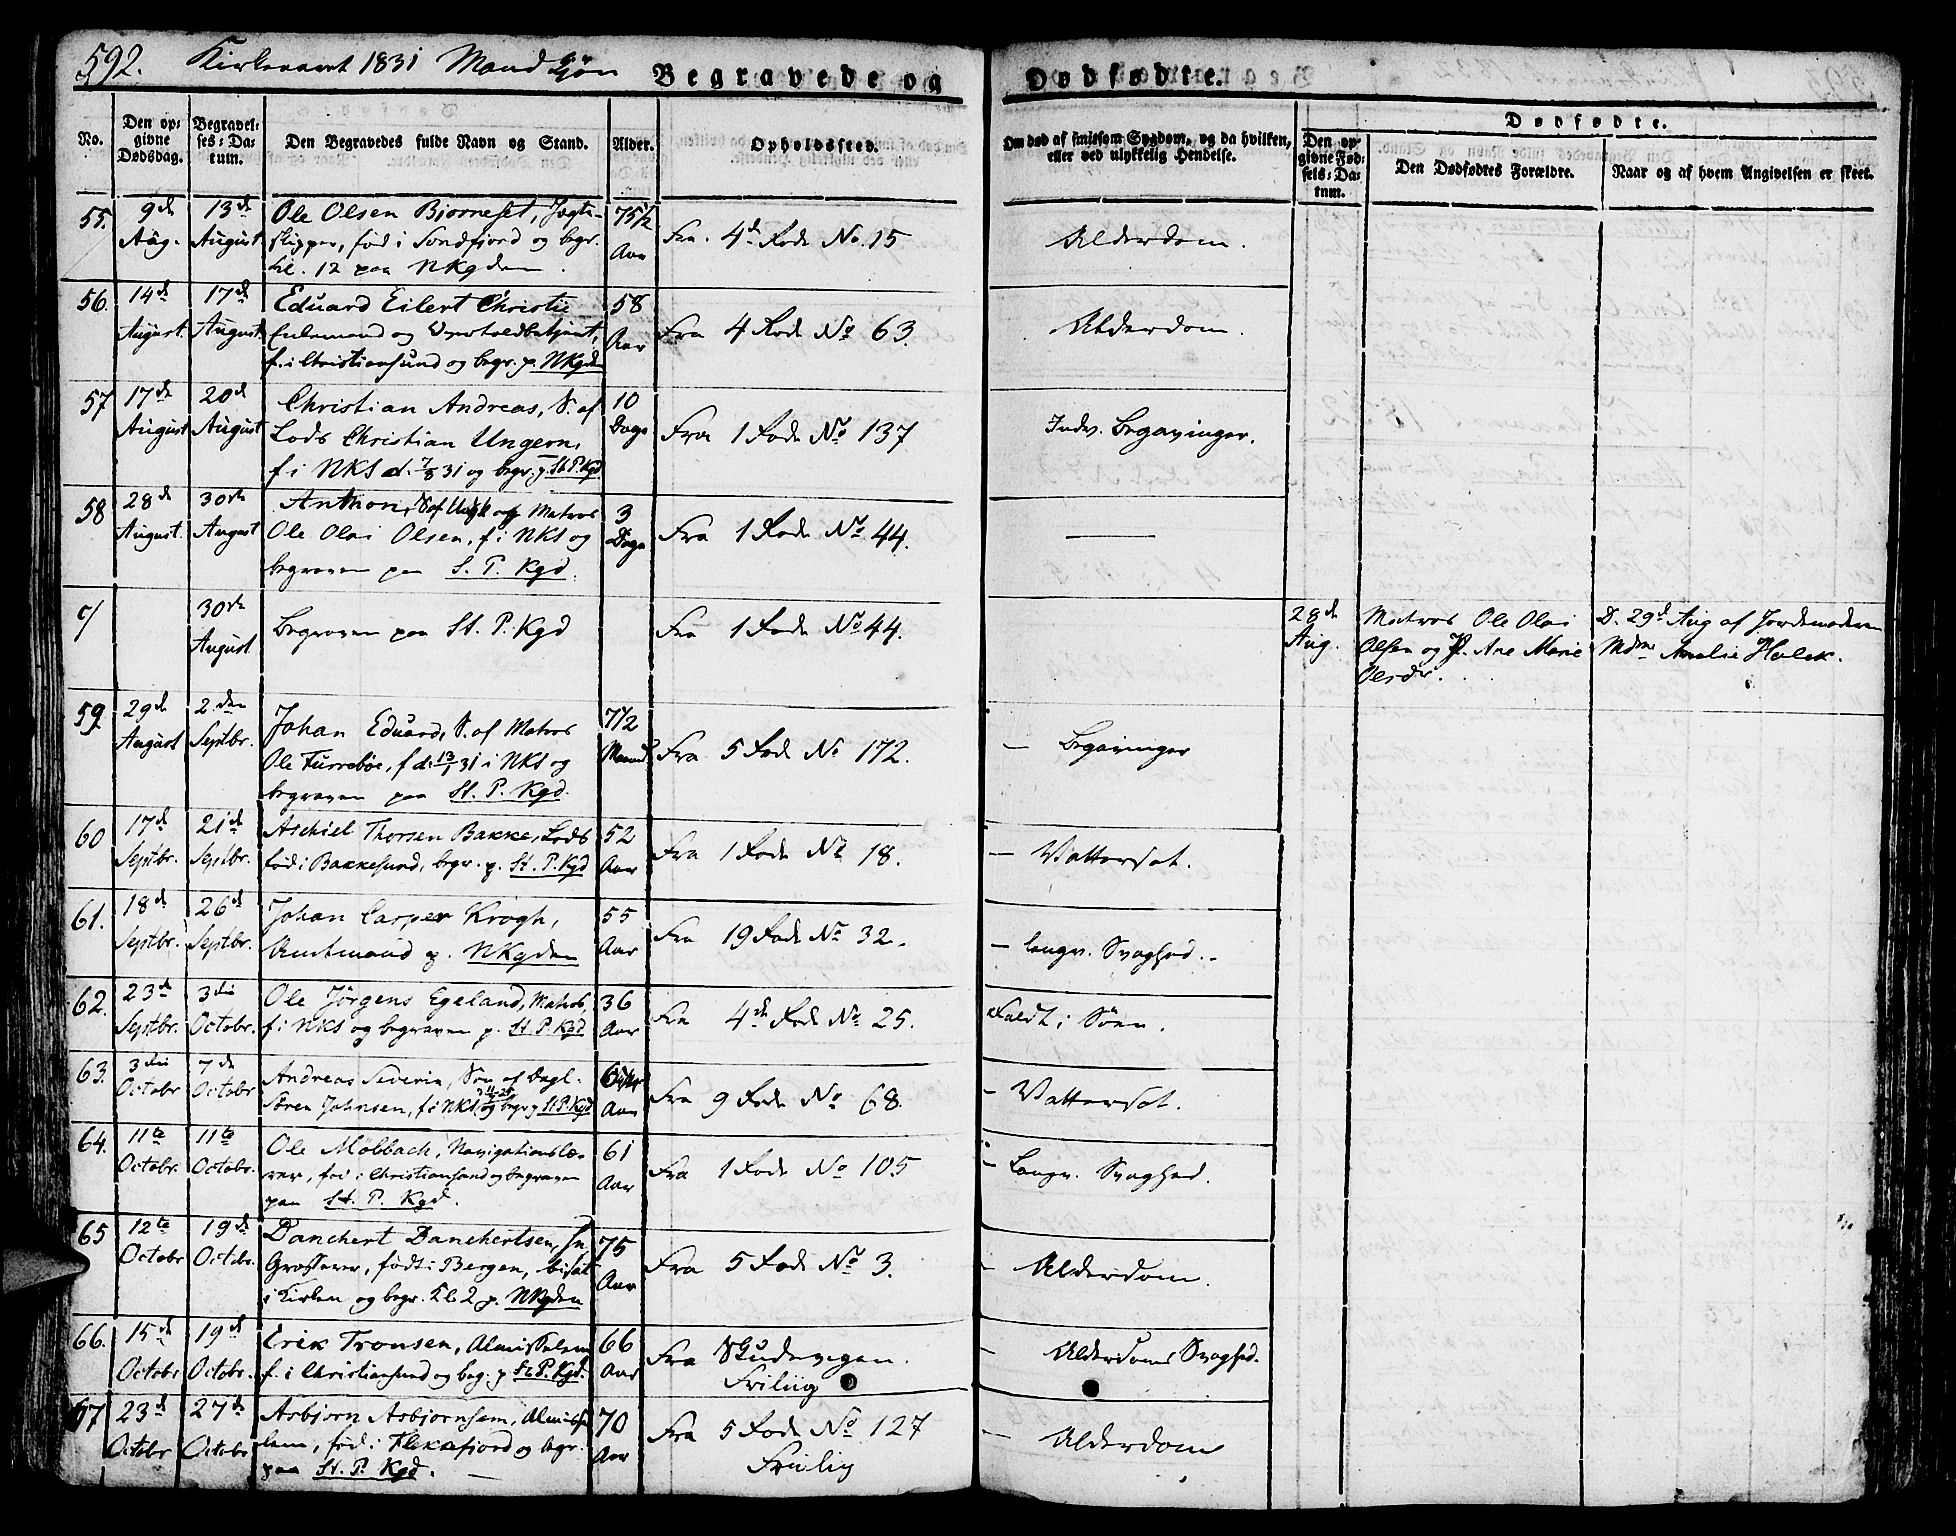 592. Kirkeaaret 1831 Mandkjön
Begravede og Dødfødte.
No.
Den opgivne Dødsdag.
Begravelses-Datum.
Den Begravedes fulde Navn og Stand.
Alder.
Opholdssted.
Om død af smitsom Sygdom, og da hvilken, eller ved ulykkelig Hendelse.
Dødfødte.
Den opgivne Fødsels-Datum.
Den Dødfødtes Forældre.
Naar og af hvem Angivelsen er skeet.
55. 9de Aug. 13de August Ole Olsen Bjorneset, Jagt-
skipper, föd i Sondfjord og begr.
kl. 12 paa NKgden.
75 1/2 Aar Fra 4de Rode No. 15 Alderdom.
56. 14de August 17de August Eduard Eilert Christie
Enkemand og Opsynsbetjent,
f. i Christiansund og begr. p. NKgden
58 Aar Fra 4 Rode No 63. Alderdom.
57 17de August 20de August Christian Andreas, S. af
Lods Christian Ungern,
f. i NKS d. 7/8 31 og begr. p. St. P. Kgd
10 Dage Fra 1 Rode No 137 Indv. Begavinger.
58 28de August 30te August Anthon, S. af Matros
Ole Olai Olsen, f. i NKS og
begraven paa St. P. Kgd.
3 Dage Fra 1 Rode No 44.
c/ 30te August Begraven paa St. P. Kgd Fra 1 Rode No 44. 28de Aug. Matros Ole Olai
Olsen og P. Ane Marie
D. 29de Aug af Jordemoderen
Mdme Amalie Holck.
59 29de August 2den Septbr. Johan Eduard, S. af Matros
Ole Furreböe, f. d. 13/1 31 i NKS og
begraven paa St. P. Kgd.
7 1/2 Maaned Fra 5 Rode No 172. — Begavinger
60 17de Septbr. 21de Septbr. Aschiel Thorsen Bakke, Lods
föd i Bakkesund, begr. p. St. P. Kgd
52 Aar Fra 1 Rode No 18. — Vattersot.
61. 18de Septbr. 26de Septbr. Johan Casper Krogh,
Amtmand p. NKgden
55 Aar Fra 19 Rode No 32. — langv. Svaghed.
62. 23de Septbr. 3die Octobr. Ole Jörgens Egeland, Matros,
f. i NKS og begraven p. St. P. Kgd
36 Aar Fra 4de Rode No 25. Faldt i Söen.
63. 3die Octobr 7de Octobr. Andreas Severin, Sön af Dagl.
Sören Johnsen, f. i NKS og begr. p. St. P. Kgd
Aar Fra 9 Rode No 68. — Vattersot.
64. 11te Octobr. 11te Octobr. Ole Möllbach, Navigationslæ-
rer, föd i Christiansand og begraven
paa St. P. Kgd.
61 Aar Fra 1 Rode No 105 — Langv. Svaghed.
65 12te Octobr 19de Octobr. Danchert Danchertsen, sn
Grosserer, födt i Bergen, bisat
i Kirken og begr. Kl. 2 p. NKgden
75 Aar Fra 5 Rode No 3. — Alderdom.
66. 15de Octobr 19de Octobr. Erik Tronsen, Almisselem
f. i Christiansund og beg. p. St. P. Kgd.
66 Aar Fra Skudevigen.
Friliig
— Alderdoms Svaghed.
67 23de Octobr 27de Octobr Asbjorn Asbjornsen, Almisse-
lem, föd i Flekkefjord og begr.
paa St. P. Kgd.
70 Aar Fra 5 Rode No 127
Friliig
— Alderdom